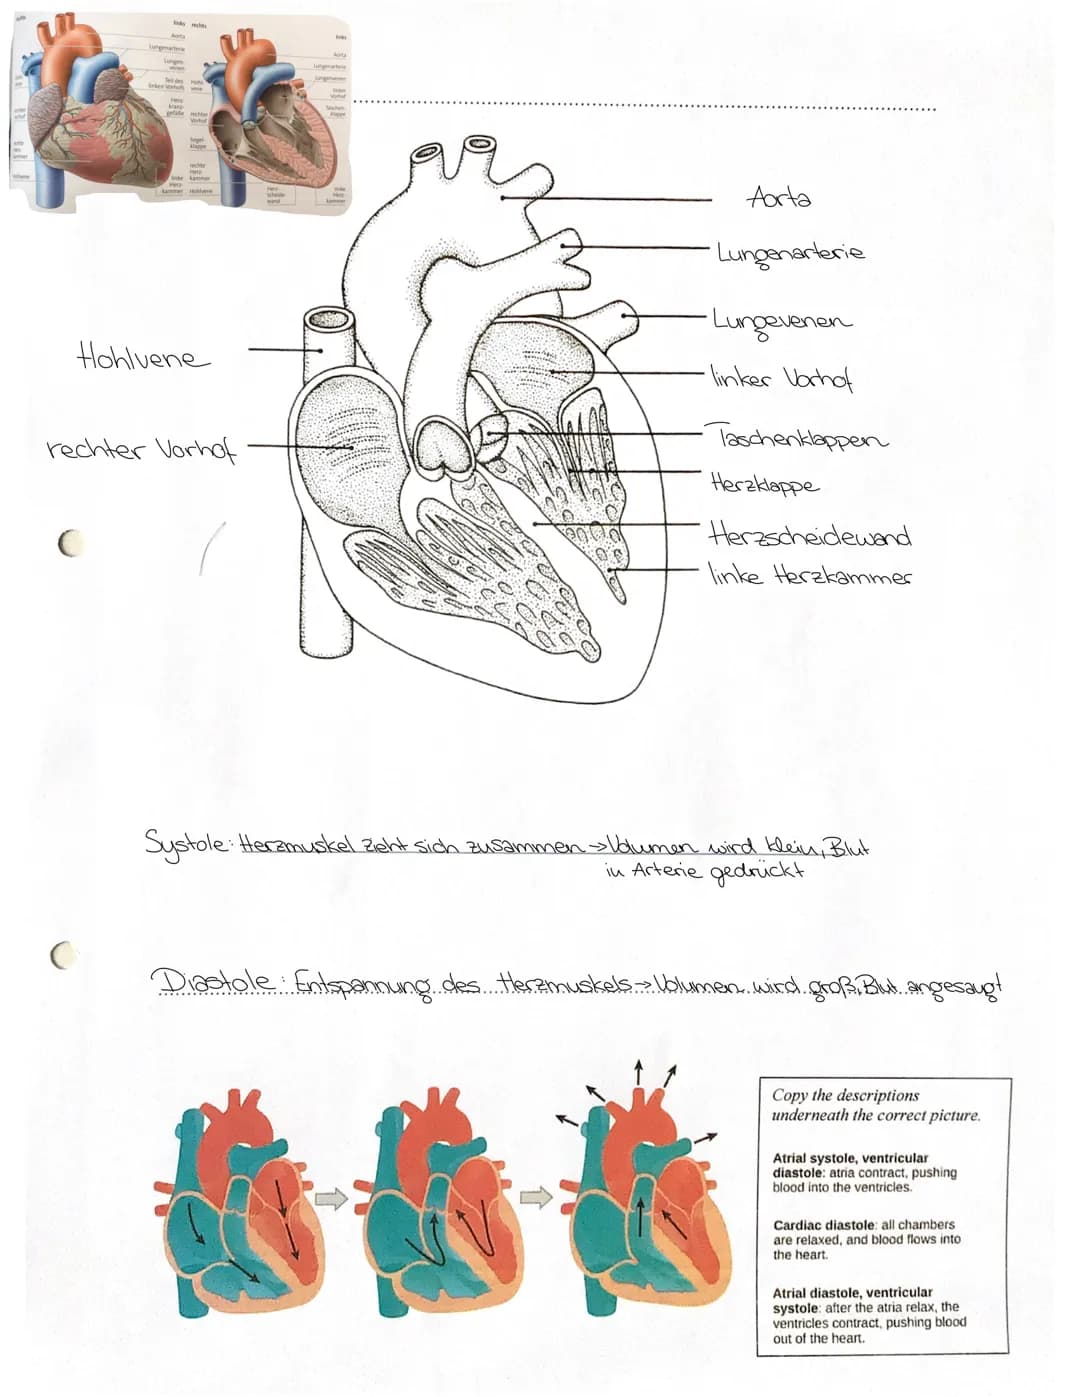 links rechts
Aorta
Lungenarterie
Lungen-
venen
Teil des
linken Vorhofs
Herz-
kranz-
gefäße
linke
Herz-
kammer
Hohl-
vene
rechter
Vorhof
Segel-
klappe
rechte
Herz-
kammer
Hohlvene
links
Aorta
Lungenarterie
Lungenvenen
linker
Vorhof
Taschen-
klappe
Herz-
scheide-
wand
linke
Herz-
kammer
Aorta
Lungenarterie
Lungevenen
linker Vorhof
Taschenklappen
Herzklappe
Herzscheidewand
linke Herzkammer
Hohlvene
rechter Vorhof
Systole: Herzmuskel zieht sich zusammen → Volumen wird klein, Blut
in Arterie gedrückt
Diastole: Entspannung des Herzmuskels → Volumen wird groß, Blut angesaugt
Copy the descriptions
underneath the correct picture.
Atrial systole, ventricular
diastole: atria contract, pushing
blood into the ventricles.
Cardiac diastole: all chambers
are relaxed, and blood flows into
the heart.
Atrial diastole, ventricular
systole: after the atria relax, the
ventricles contract, pushing blood
out of the heart.